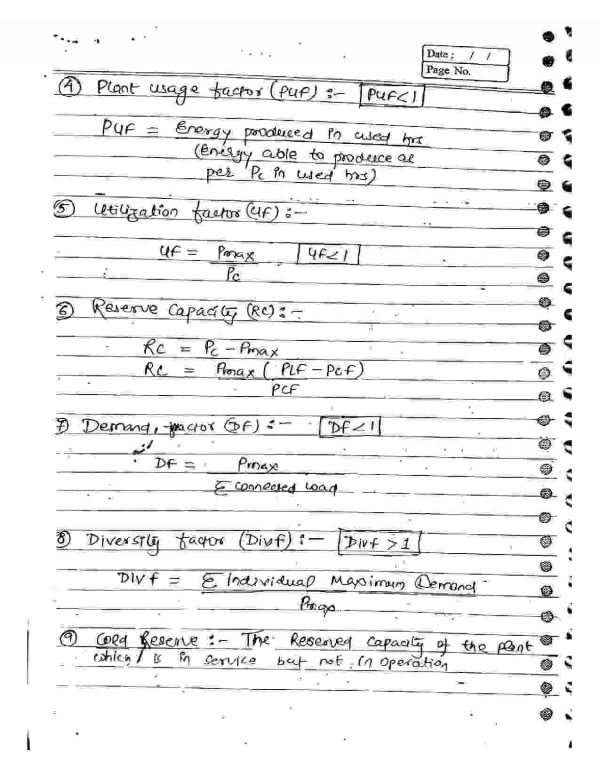 Date : / /
Page No.
④ Plant usage factor (PUF) :- PUF<1
PUF = Energy produced in used hrs
(Energy able to produce as
per Pc in used hrs)
⑤ Utilization factor (UF) :-
UF = Pmax , UF<1
Pc
⑥ Reserve Capacity (RC) :-
RC = Pc - Pmax
RC = Pmax ( PLF - PCF)
PCF
7) Demand factor (DF) :- DF<1
DF = Pmax
Σ Connected Load
⑧ Diversity factor (Divf) :- Divf >1
DIV f = Σ Individual Maximum Demand
Pmax
⑨ Cold Reserve :- The Reserved Capacity of the plant
which is in service but not in operation